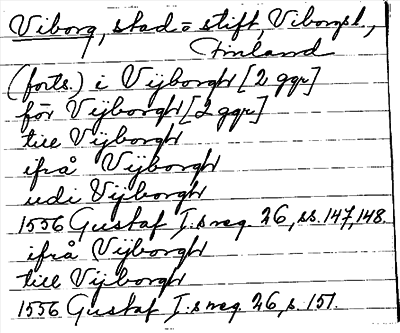 Viborg, stad = stift, Viborgsl.,
Finland
(forts.) i Vijborgh [2 ggr]
för Vijborgh [2 ggr]
till Vijborgh
ifrå Vijborgh
udi Vijborgh
1556 Gustaf I:s reg. 26, ss. 147, 148.
ifrå Vijborgh
till Vijborgh
1556 Gustaf I:s reg. 26, s. 151.